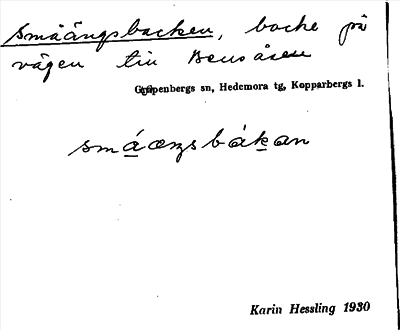 Småängsbacken, backe på
vägen till Bensåsen
Garpenbergs sn, Hedemora tg, Kopparbergs l.
småæŋsbákan
Karin Hessling 1930